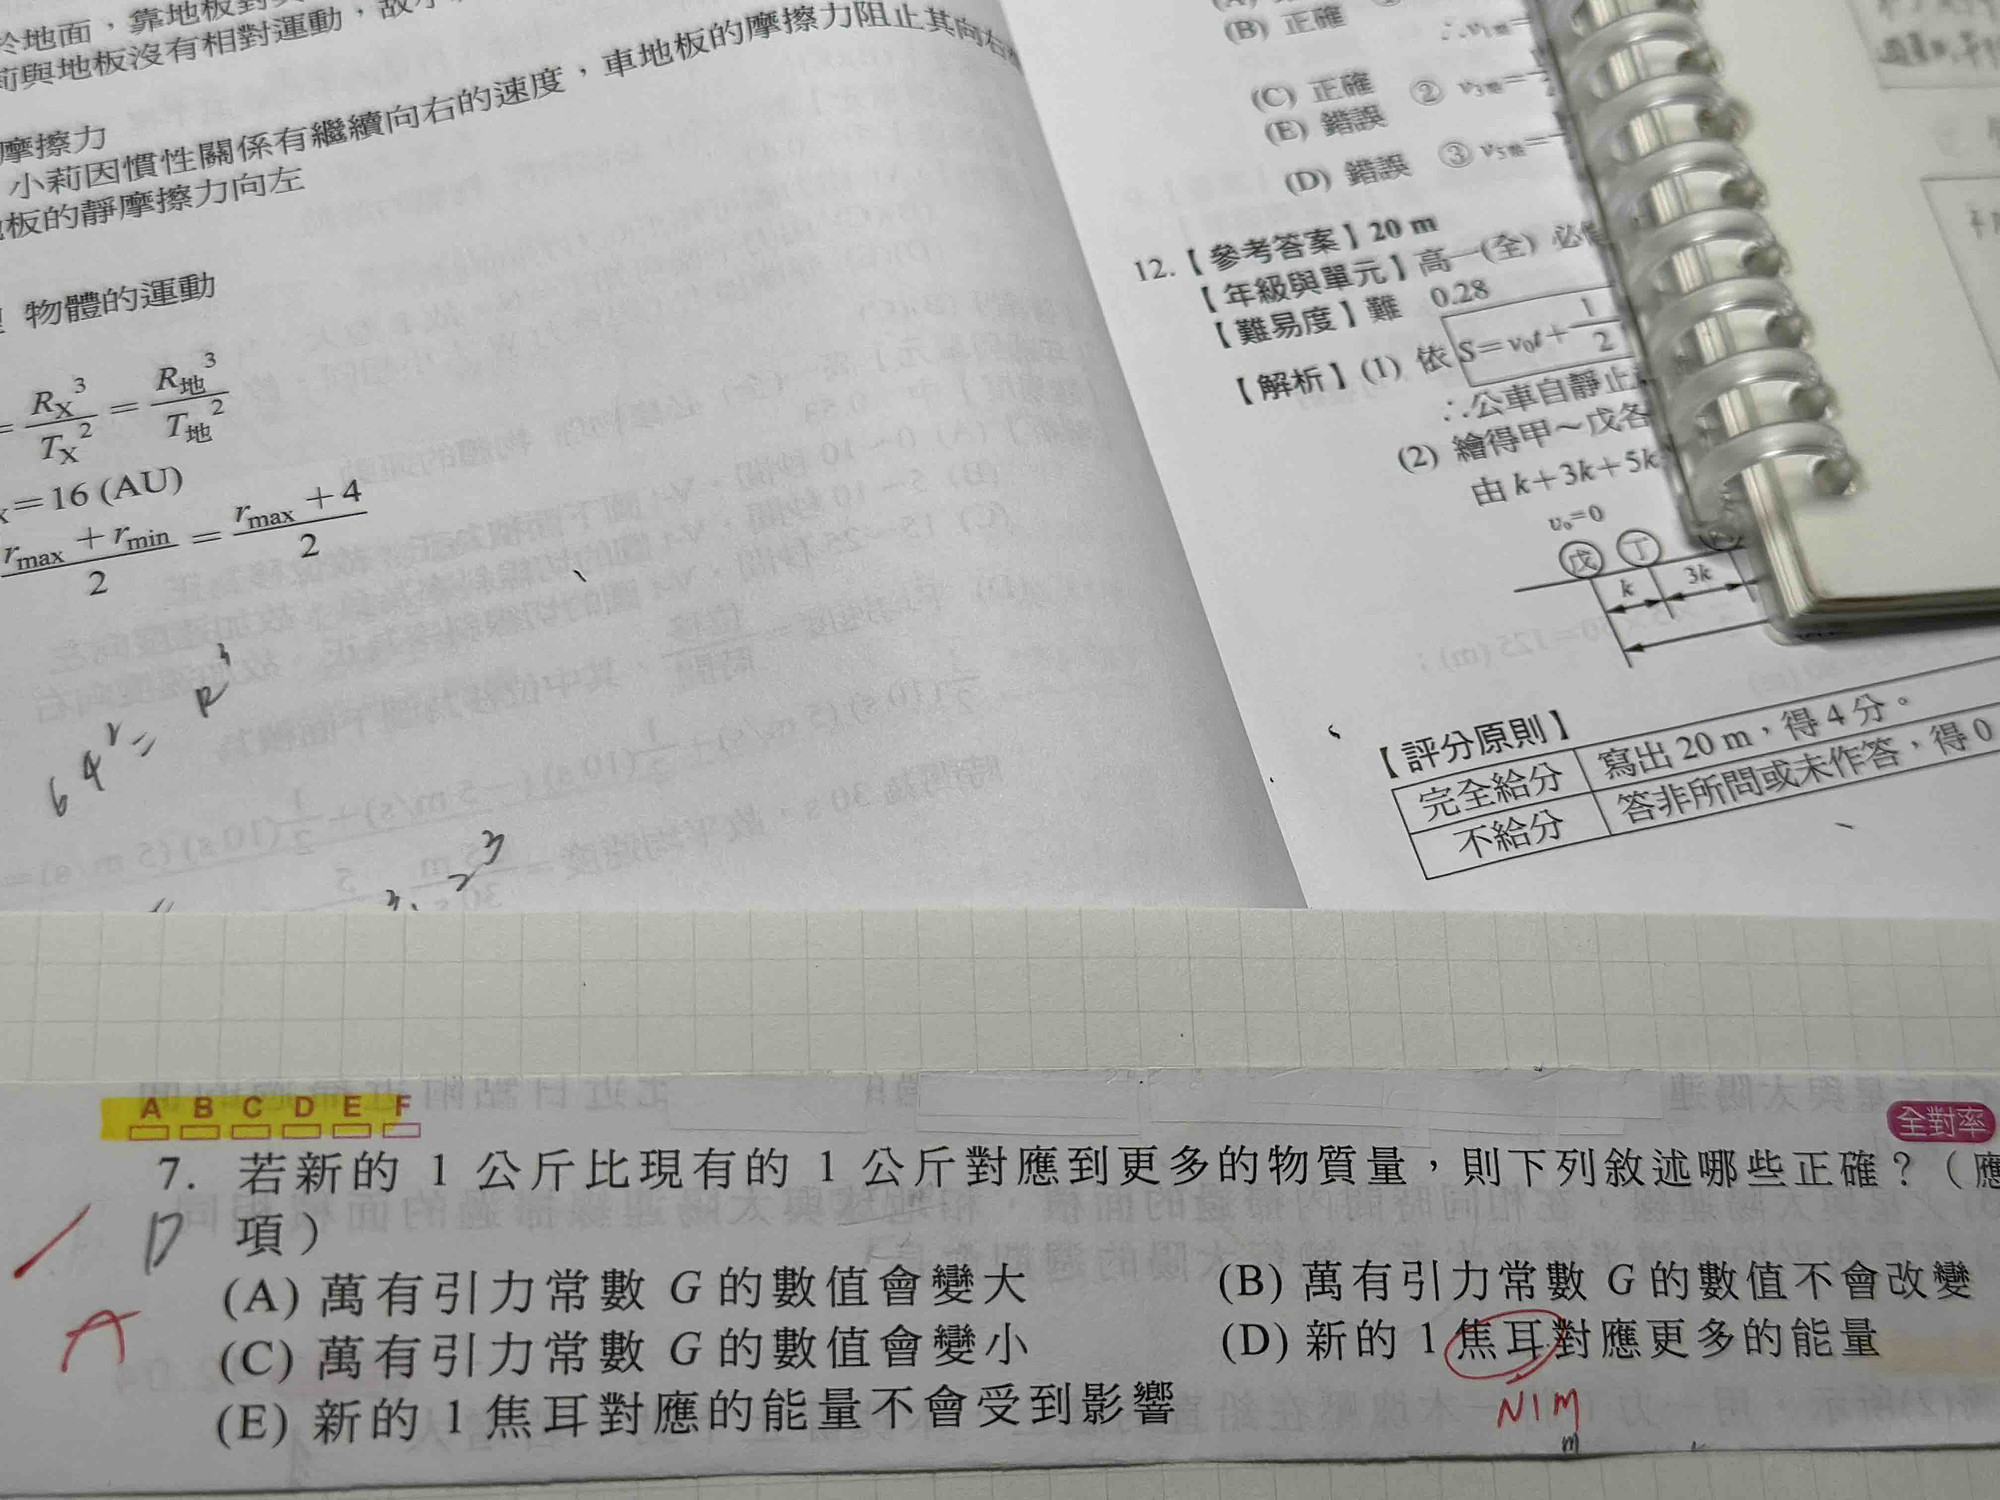 於地面，靠地板對
莉與地板沒有相對運動，故
摩擦力
小莉因慣性關係有繼續向右的速度，車地板的摩擦力阻止其向右
板的靜摩擦力向左
物體的運動
= R_X^3 / T_X^2 = R_地^3 / T_地^2
=16 (AU)
r_max + r_min / 2 = r_max + 4 / 2
64^2 = R^3
(B) 正確
(C) 正確 ②
(E) 錯誤
(D) 錯誤 ③
12.【參考答案】20 m
【年級與單元】高一(全) 必修
【難易度】難 0.28
【解析】(1) 依 S=v_0t+ 1/2
∴公車自靜止
(2) 繪得甲～戊各
由 k+3k+5k
v_0=0
戊 丁
k 3k
【評分原則】
完全給分 寫出 20 m，得 4 分。
不給分 答非所問或未作答，得 0
A B C D E F
全對率
7. 若新的 1 公斤比現有的 1 公斤對應到更多的物質量，則下列敘述哪些正確？（應
項）
D
(A) 萬有引力常數 G 的數值會變大 (B) 萬有引力常數 G 的數值不會改變
(C) 萬有引力常數 G 的數值會變小 (D) 新的 1 焦耳對應更多的能量
(E) 新的 1 焦耳對應的能量不會受到影響